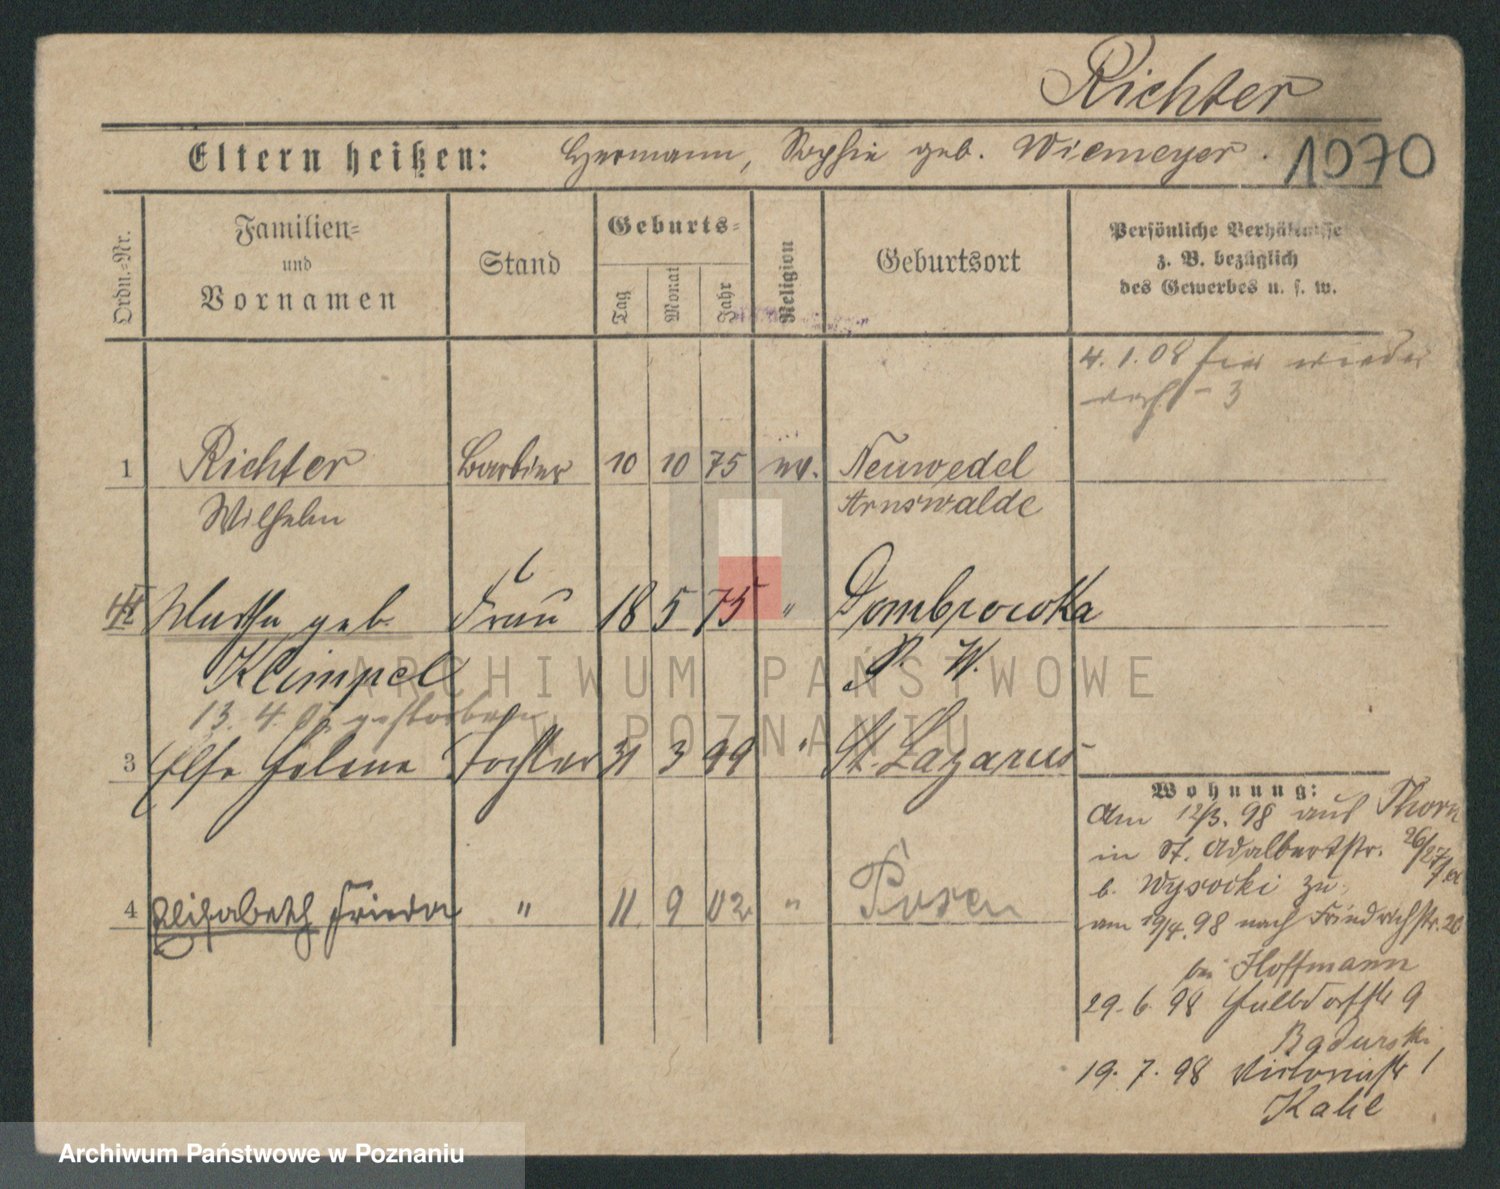 Richter
Eltern heißen: Hermann, Sophie geb. Wiemeyer.
1070
Ordn.-Nr.
Familien-
und
Vornamen
Stand
Geburts-
Tag
Monat
Jahr
Religion
Geburtsort
Persönliche Verhältnisse
z. B. bezüglich
des Gewerbes u. s. w.
4. 1. 08 hier wieder
- 3
1 Richter Barbier 10 10 75 ev. Neuwedel
Wilhelm Arnswalde
Martha geb. Frau 18 5 75 " Dombrowka
Klimpel P. W.
13. 4. gestorben
3 Else Helene Tochter 31 3 99 " St. Lazarus
4 Elisabeth Frieda " 11 9 02 " Posen
Wohnung:
Am 12/3. 98 aus Thorn
in St. Adalbertstr. 26/27
b. Wysocki zu
am 19/4. 98 nach Friedrichstr. 20
bei Hoffmann
29. 6. 98 Halbdorfstr 9
Badurski
19. 7. 98 Victoriastr 1
Kahl
ARCHIWUM PAŃSTWOWE
W POZNANIU
Archiwum Państwowe w Poznaniu